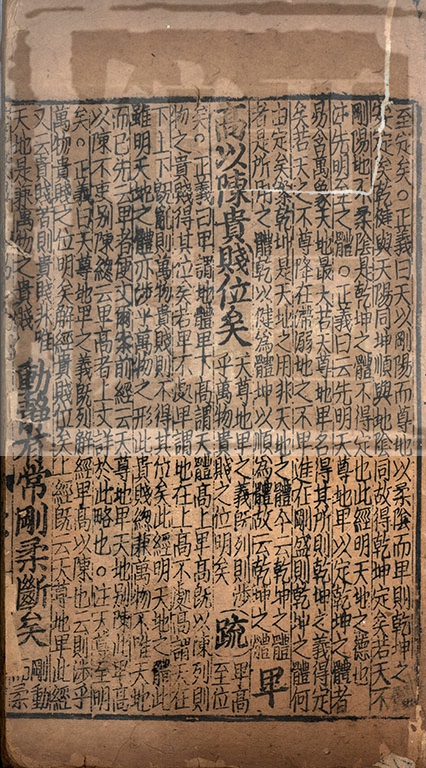 至定矣○正義曰天以剛陽而尊地以柔陰而卑則乾坤之
體安定矣乾健與天陽同坤順與地陰同故得乾坤定矣若天不
剛陽地不柔陰是乾坤之體不得定也此經明天地之德也
注先明至之體○正義曰云先明天尊地卑以定乾坤之體者
易含萬象天地最大若天尊地卑名得其所則乾坤之義得定
矣若天之不尊降在滯溺地之不卑進在剛盛則乾坤之體何
由定矣案乾坤是天地之用非天地之體今云乾坤之體
者是所用之體乾以健為體坤以順為體故云乾坤之體 卑
高以陳貴賤位矣 天尊地卑之義既列則涉
乎萬物貴賤之位明矣 疏 卑高
至位
矣○正義曰卑謂地體卑下高謂天體高上卑高既以陳列則
物之貴賤得其位矣若卑不處卑謂地在上高不處高謂天在
下上下既亂則萬物貴賤則不得其位矣此經明天地之體此
雖明天地之體亦涉乎萬物之形此貴賤總兼萬物不惟天地
而已先云卑者便文爾案前經云天尊地卑天地別陳此卑高
以陳不更別陳總云卑高者上文詳於此略也○注天尊至明
矣○正義曰天尊地卑之義既列解經卑高以陳也云則涉乎
萬物貴賤之位明矣解經貴賤位矣上經既云天尊地卑此經
又云貴賤者則貴賤非唯
天地是兼萬物之貴賤 動靜有常剛柔斷矣 剛動